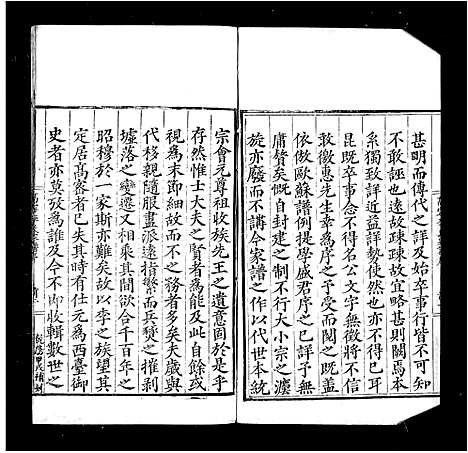 甚明而傳代之詳及始卒事行皆不可知
不敢誣也遠故疎疎故宜略甚則闕焉本
系獨致詳近益詳勢使然也亦不得已耳
昆既卒事念不得名公文字無徵將不信
敢徼惠先生幸爲序之序而闡之既蓋
依倣歐蘇譜例提學戚君序之已詳予無
庸贅矣慨自封建之制不行大小宗之
旋亦廢而不講今家譜之作以代世本統
宗會元尊祖收族先王之遺意固於是乎
存然惟士大夫之賢者爲能及此自餘或
視爲末節細故而不之務者多矣夫歲與
代移親隨服盡派遠指繁而兵燹之摧剥
墟落之變遷又相乘其間欲合千百年之
昭穆於一家斯亦難矣故以李之族望其
定居髙窑者已失其時有仕元爲西臺御
史者亦莫攷爲誰及今不即收輯數世之